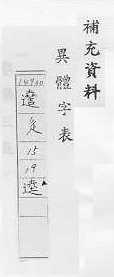 補充資料
異體字表
14940
辵
15
19